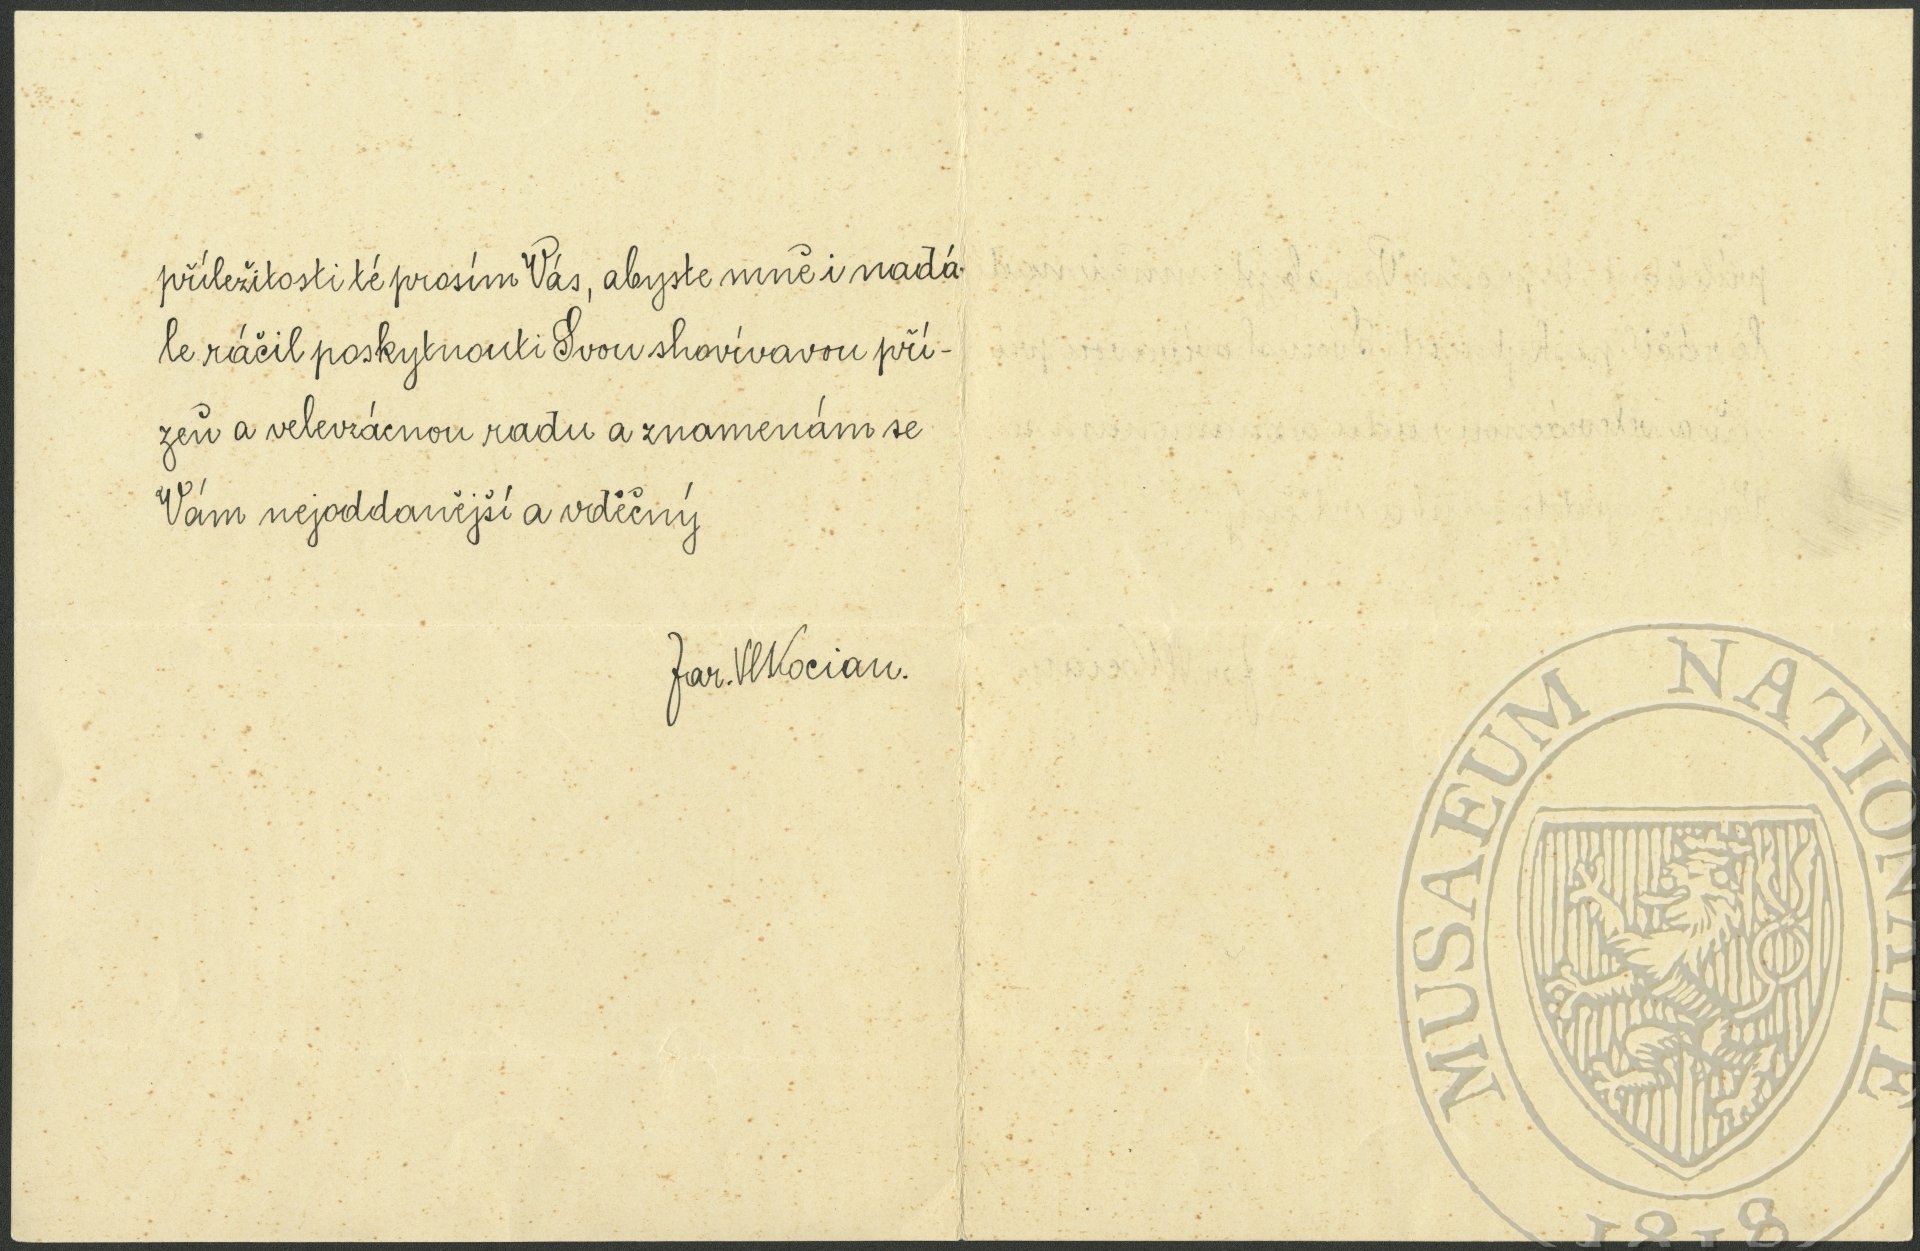 příležitosti té prosím Vás, abyste mně i nadá-
le ráčil poskytnouti Svou shovívavou pří-
zeň a velevzácnou radu a znamenám se
Vám nejoddanější a vděčný
Jar. Vl Kocian.
MUSAEUM NATIONALE
1818